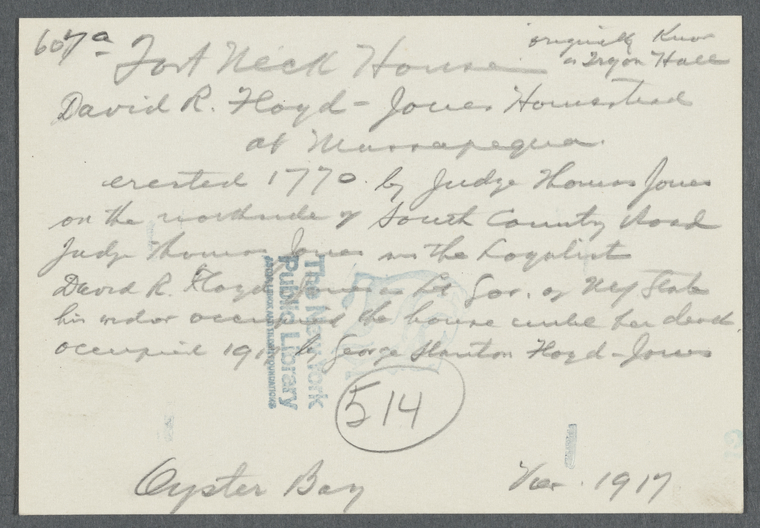 607a
originally Know
as Tryon Hall
Fort Neck House
David R. Floyd-Jones Homestead
at Massapequa.
erected 1770 by Judge Thomas Jones
on the northside of South County Road
Judge Thomas Jones was the Loyalist
David R. Floyd Jones Lt Gov. of NY State
his widow occupied the house until her death.
occupied 1917 by George Stanton Floyd-Jones
The New York
Public Library
514
Oyster Bay
1917